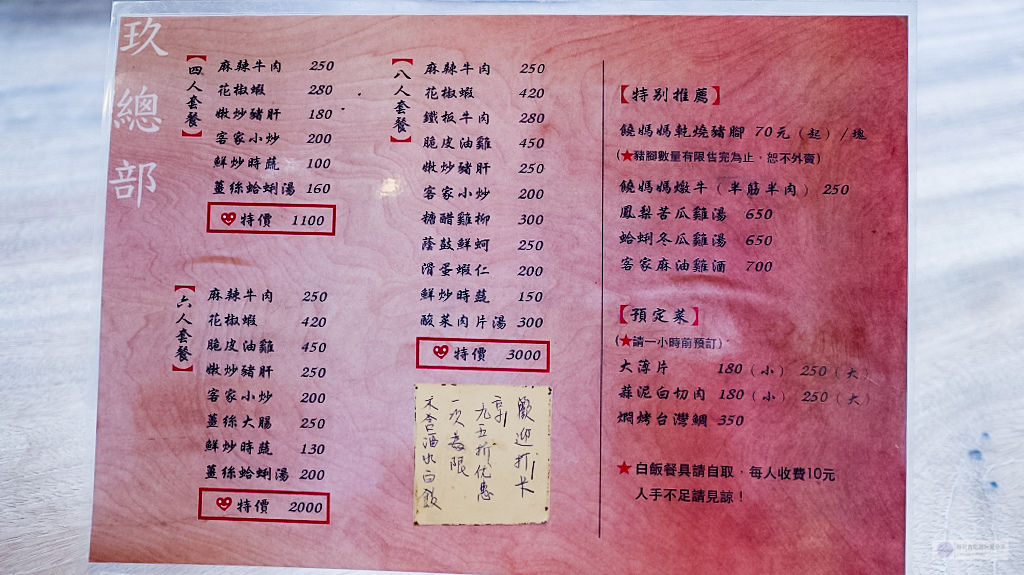 玖總部
【四人套餐】
麻辣牛肉 250
花椒蝦 280
嫩炒豬肝 180
客家小炒 200
鮮炒時蔬 100
薑絲蛤蜊湯 160
特價 1100
【六人套餐】
麻辣牛肉 250
花椒蝦 420
脆皮油雞 450
嫩炒豬肝 250
客家小炒 200
薑絲大腸 250
鮮炒時蔬 130
薑絲蛤蜊湯 200
特價 2000
【八人套餐】
麻辣牛肉 250
花椒蝦 420
鐵板牛肉 280
脆皮油雞 450
嫩炒豬肝 250
客家小炒 200
糖醋雞柳 300
蔭鼓鮮蚵 250
滑蛋蝦仁 200
鮮炒時蔬 150
酸菜肉片湯 300
特價 3000
歡迎打卡
享
九五折优惠
一次為限
不含酒水白飯
【特別推薦】
饒媽媽乾燒豬腳 70元（起）/塊
(★豬腳數量有限售完為止．恕不外賣)
饒媽媽燉牛（半筋半肉） 250
鳳梨苦瓜雞湯 650
蛤蜊冬瓜雞湯 650
客家麻油雞酒 700
【預定菜】
(★請一小時前預訂)
大薄片 180（小） 250（大）
蒜泥白切肉 180（小） 250（大）
燜烤台灣鯛 350
★白飯餐具請自取．每人收費10元
人手不足請見諒！